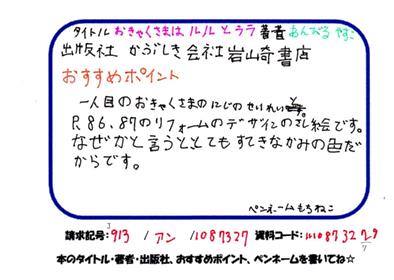 タイトル おきゃくさまは ルルとララ 著者 あんびる やすこ
出版社 かぶしき会社 岩崎書店
おすすめポイント
一人目のおきゃくさまの にじの せいれいと
P.86.87のリフォームのデザインのさし絵です。
なぜかと言うととてもすてきなかみの色だ
からです。
ペンネーム もちねこ
請求記号: 913 / アン / 1087327 資料コード:
本のタイトル・著者・出版社、おすすめポイント、ペンネームを書いてね☆